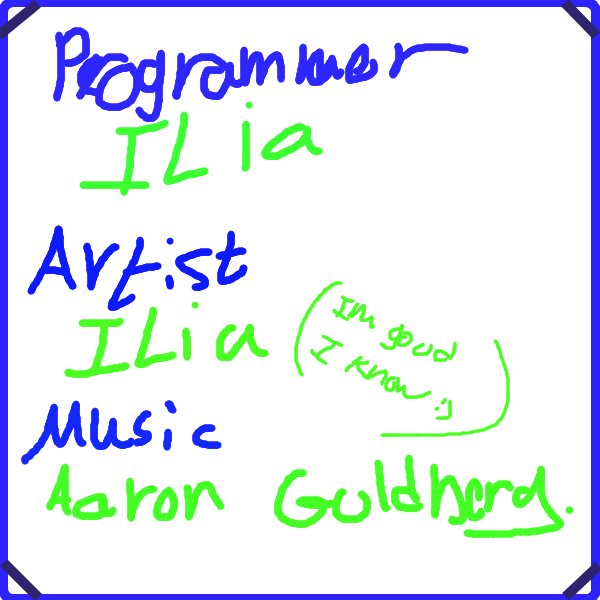 Programmer
ILia
Artist
ILia (Im good
I know :))
Music
Aaron Guldberg.